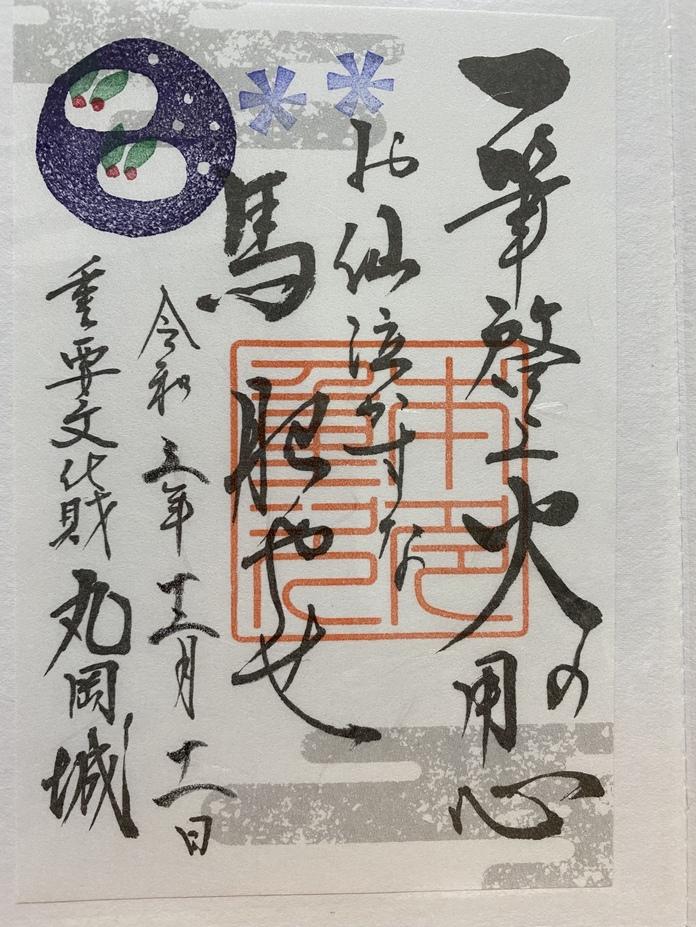 一筆啓上火の用心
お仙泣かすな
馬肥やせ
令和五年十二月十一日
重要文化財 丸岡城